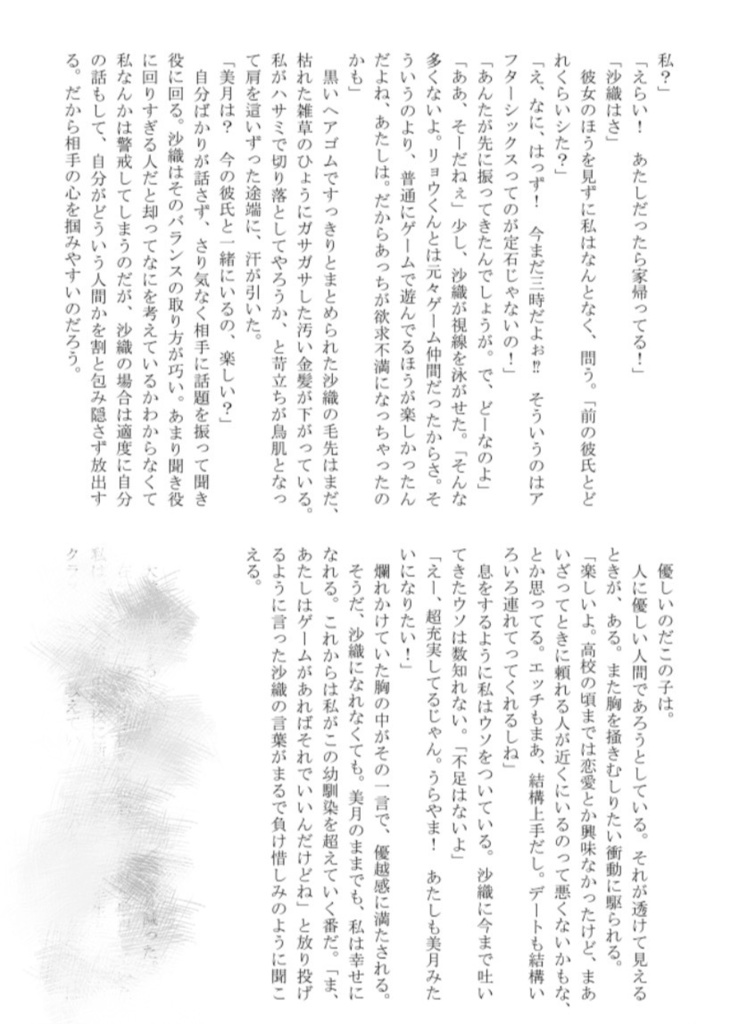 私？」
「えらい！　あたしだったら家帰ってる！」
「沙織はさ」
　彼女のほうを見ずに私はなんとなく、問う。「前の彼氏とど
れくらいシた？」
「え、なに、はっず！　今まだ三時だよぉ⁉　そういうのはア
フターシックスってのが定石じゃないの！」
「あんたが先に振ってきたんでしょうが。で、どーなのよ」
「ああ、そーだねぇ」少し、沙織が視線を泳がせた。「そんな
多くないよ。リョウくんとは元々ゲーム仲間だったからさ。そ
ういうのより、普通にゲームで遊んでるほうが楽しかったん
だよね、あたしは。だからあっちが欲求不満になっちゃったの
かも」
　黒いヘアゴムですっきりとまとめられた沙織の毛先はまだ、
枯れた雑草のひょうにガサガサした汚い金髪が下がっている。
私がハサミで切り落としてやろうか、と苛立ちが鳥肌となっ
て肩を這いずった途端に、汗が引いた。
「美月は？　今の彼氏と一緒にいるの、楽しい？」
　自分ばかりが話さず、さり気なく相手に話題を振って聞き
役に回る。沙織はそのバランスの取り方が巧い。あまり聞き役
に回りすぎる人だと却ってなにを考えているかわからなくて
私なんかは警戒してしまうのだが、沙織の場合は適度に自分
の話もして、自分がどういう人間かを割と包み隠さず放出す
る。だから相手の心を掴みやすいのだろう。
　優しいのだこの子は。
　人に優しい人間であろうとしている。それが透けて見える
ときが、ある。また胸を掻きむしりたい衝動に駆られる。
「楽しいよ。高校の頃までは恋愛とか興味なかったけど、まあ
いざってときに頼れる人が近くにいるのって悪くないかもな、
とか思ってる。エッチもまあ、結構上手だし。デートも結構い
ろいろ連れてってくれるしね」
　息をするように私はウソをついている。沙織に今まで吐い
てきたウソは数知れない。「不足はないよ」
「えー、超充実してるじゃん。うらやま！　あたしも美月みた
いになりたい！」
　爛れかけていた胸の中がその一言で、優越感に満たされる。
　そうだ、沙織になれなくても。美月のままでも、私は幸せに
なれる。これからは私がこの幼馴染を超えていく番だ。「ま、
あたしはゲームがあればそれでいいんだけどね」と放り投げ
るように言った沙織の言葉がまるで負け惜しみのように聞こ
える。